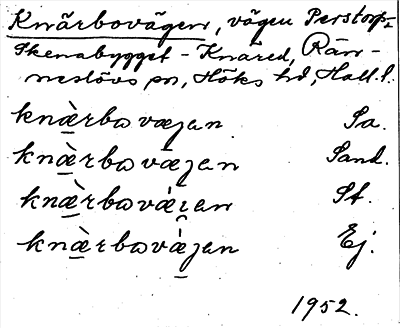 Knärbovägen, vägen Perstorp-
Skenabygget - Knäred, Rän-
neslövs sn, Höks hd, Hall. l.
knæ̀rbovæjan Sa.
knæ̀rbovæjan Sand.
knæ̀rbovǽɪan St.
knæ̀rbovǽjan Ej.
1952.